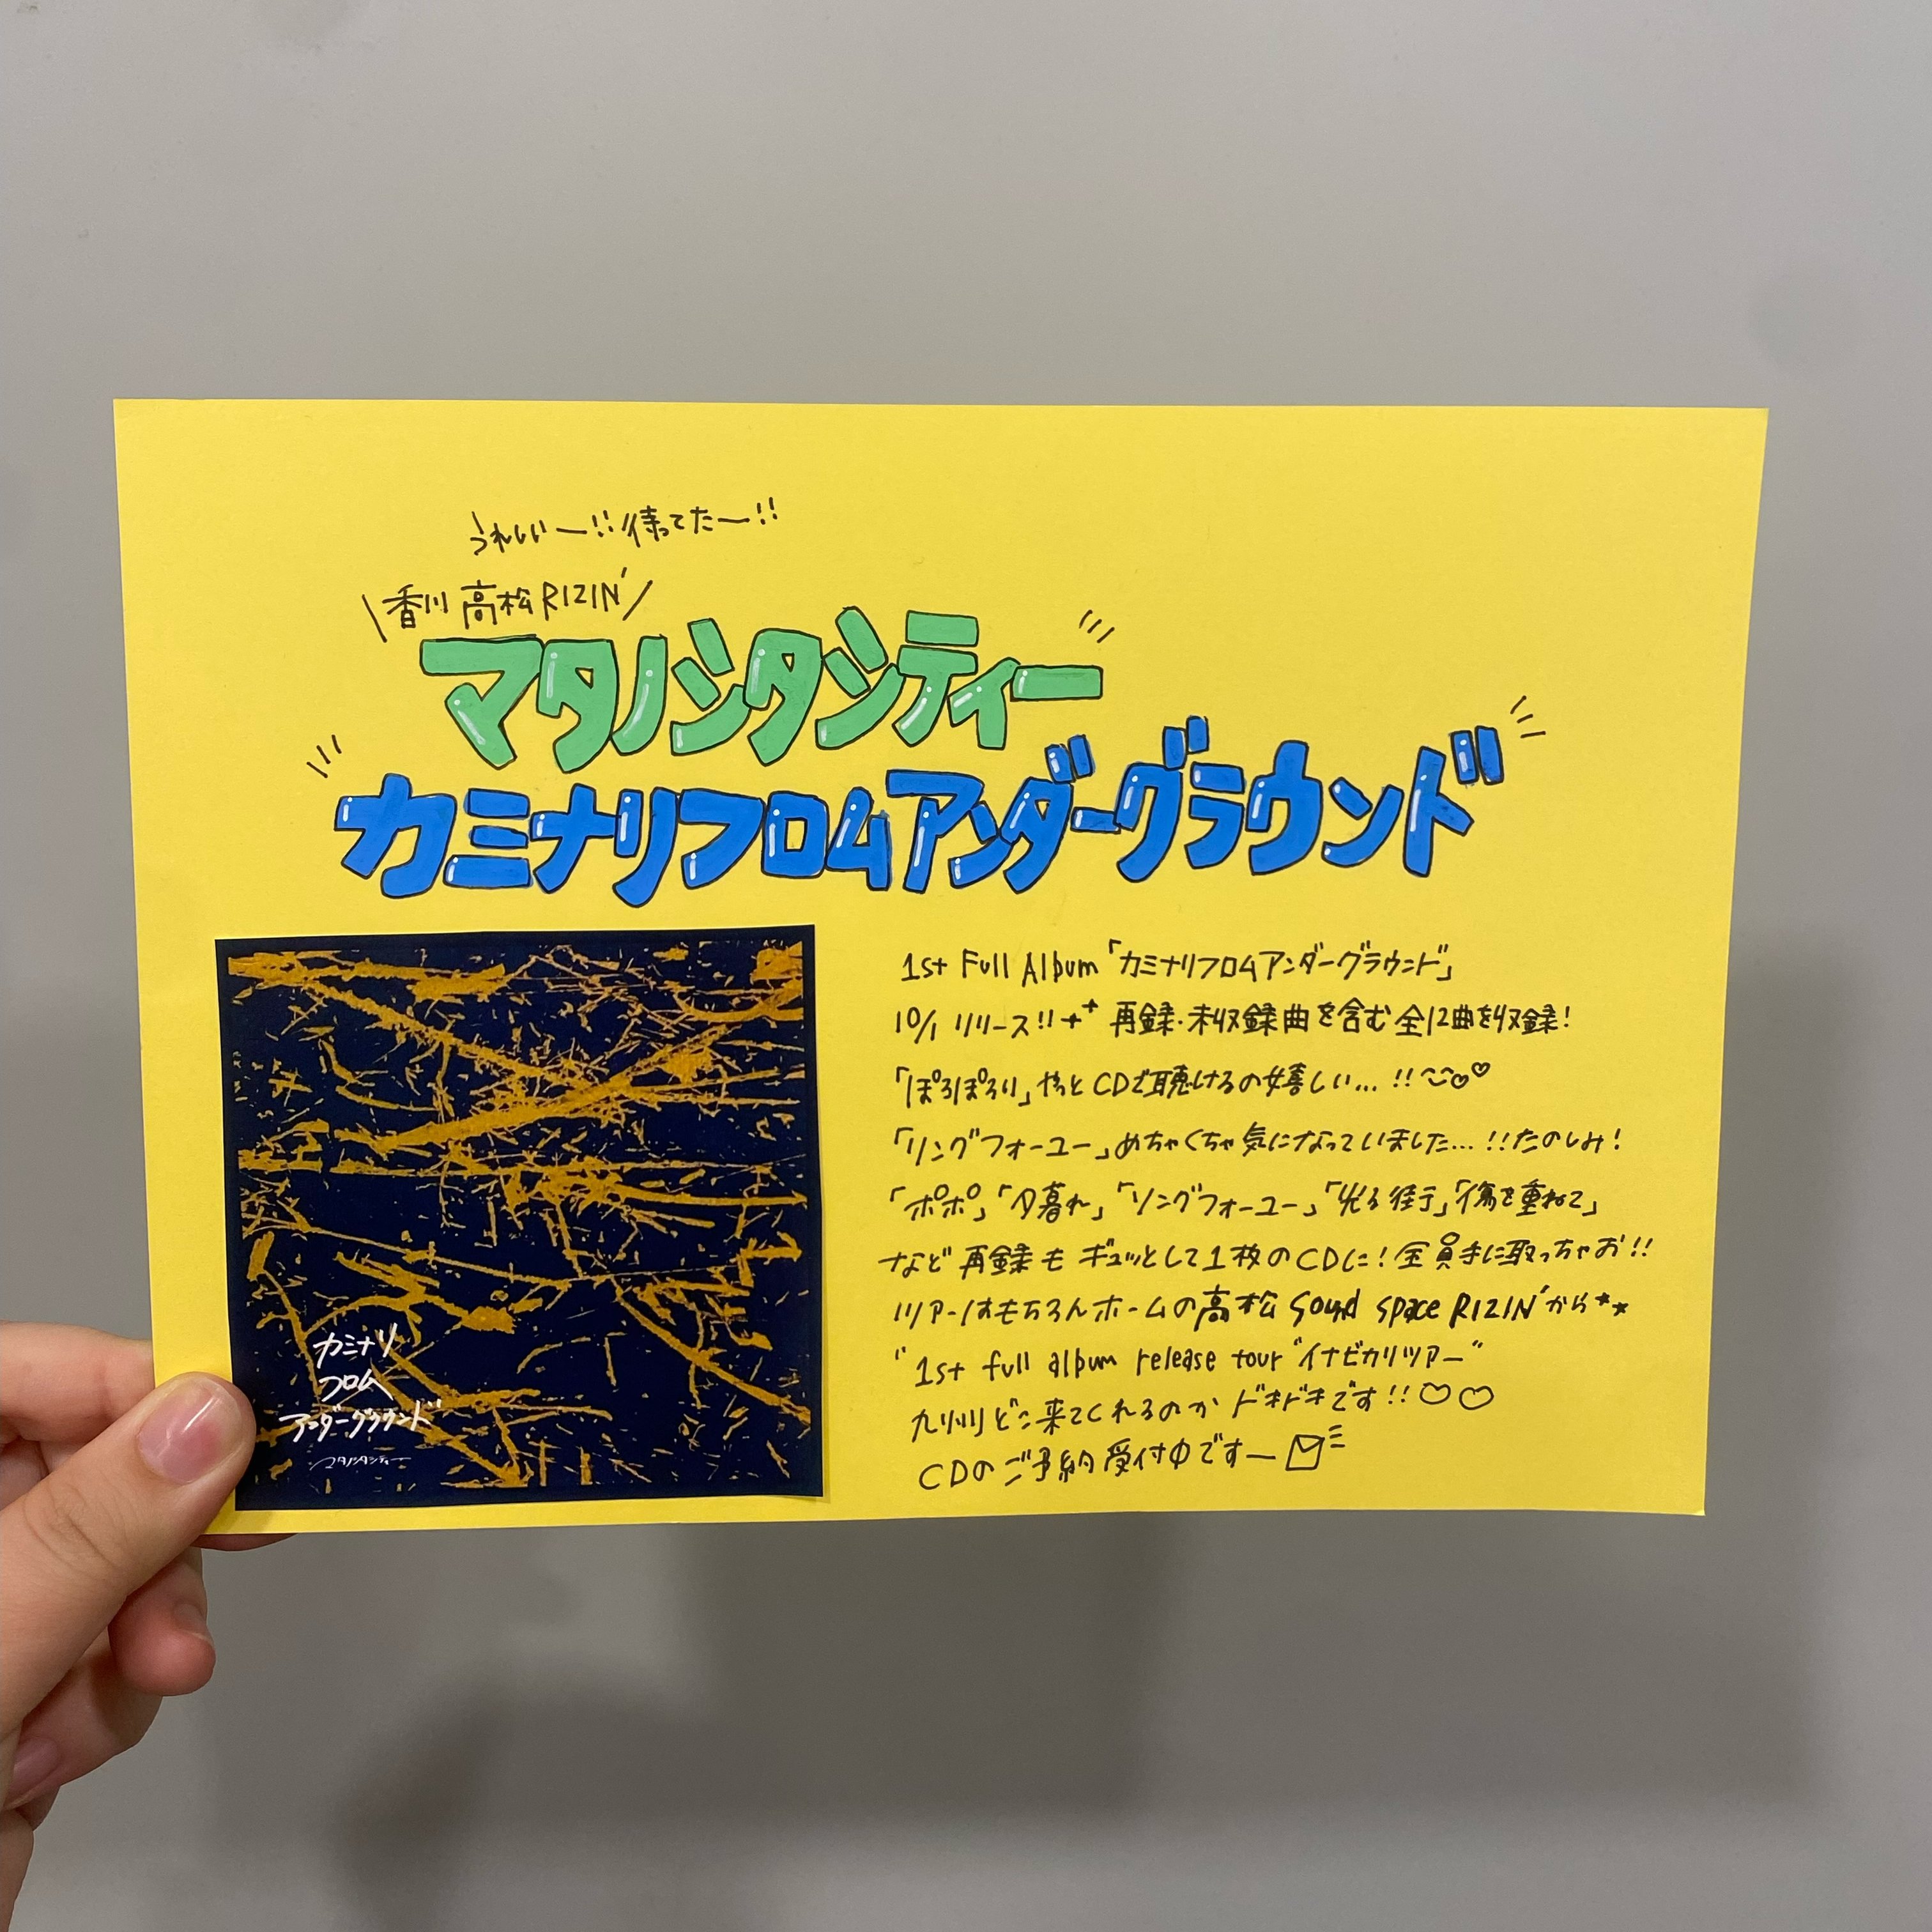 うれしいー!!待ってたー!!
\香川 高松RIZIN'/
マタノシタシティー
カミナリフロムアンダーグラウンド
1st Full Album「カミナリフロムアンダーグラウンド」
10/1 リリース!! 再録・未収録曲を含む全12曲を収録!
「ぽろぽろり」やっとCDで聴けるの嬉しい...!!
「リングフォーユー」めちゃくちゃ気になっていました...!!たのしみ!
「ポポ」「夕暮れ」「ソングフォーユー」「光る街」「傷を重ねて」
など再録もギュッとして1枚のCDに!全員手に取っちゃお!!
ツアーはもちろんホームの高松 Sound space RIZIN'から
"1st full album release tour "イナビカリツアー"
九州どこ来てくれるのかドキドキです!!
CDのご予約受付中ですー
カミナリ
フロム
アンダーグラウンド
マタノシタシティー